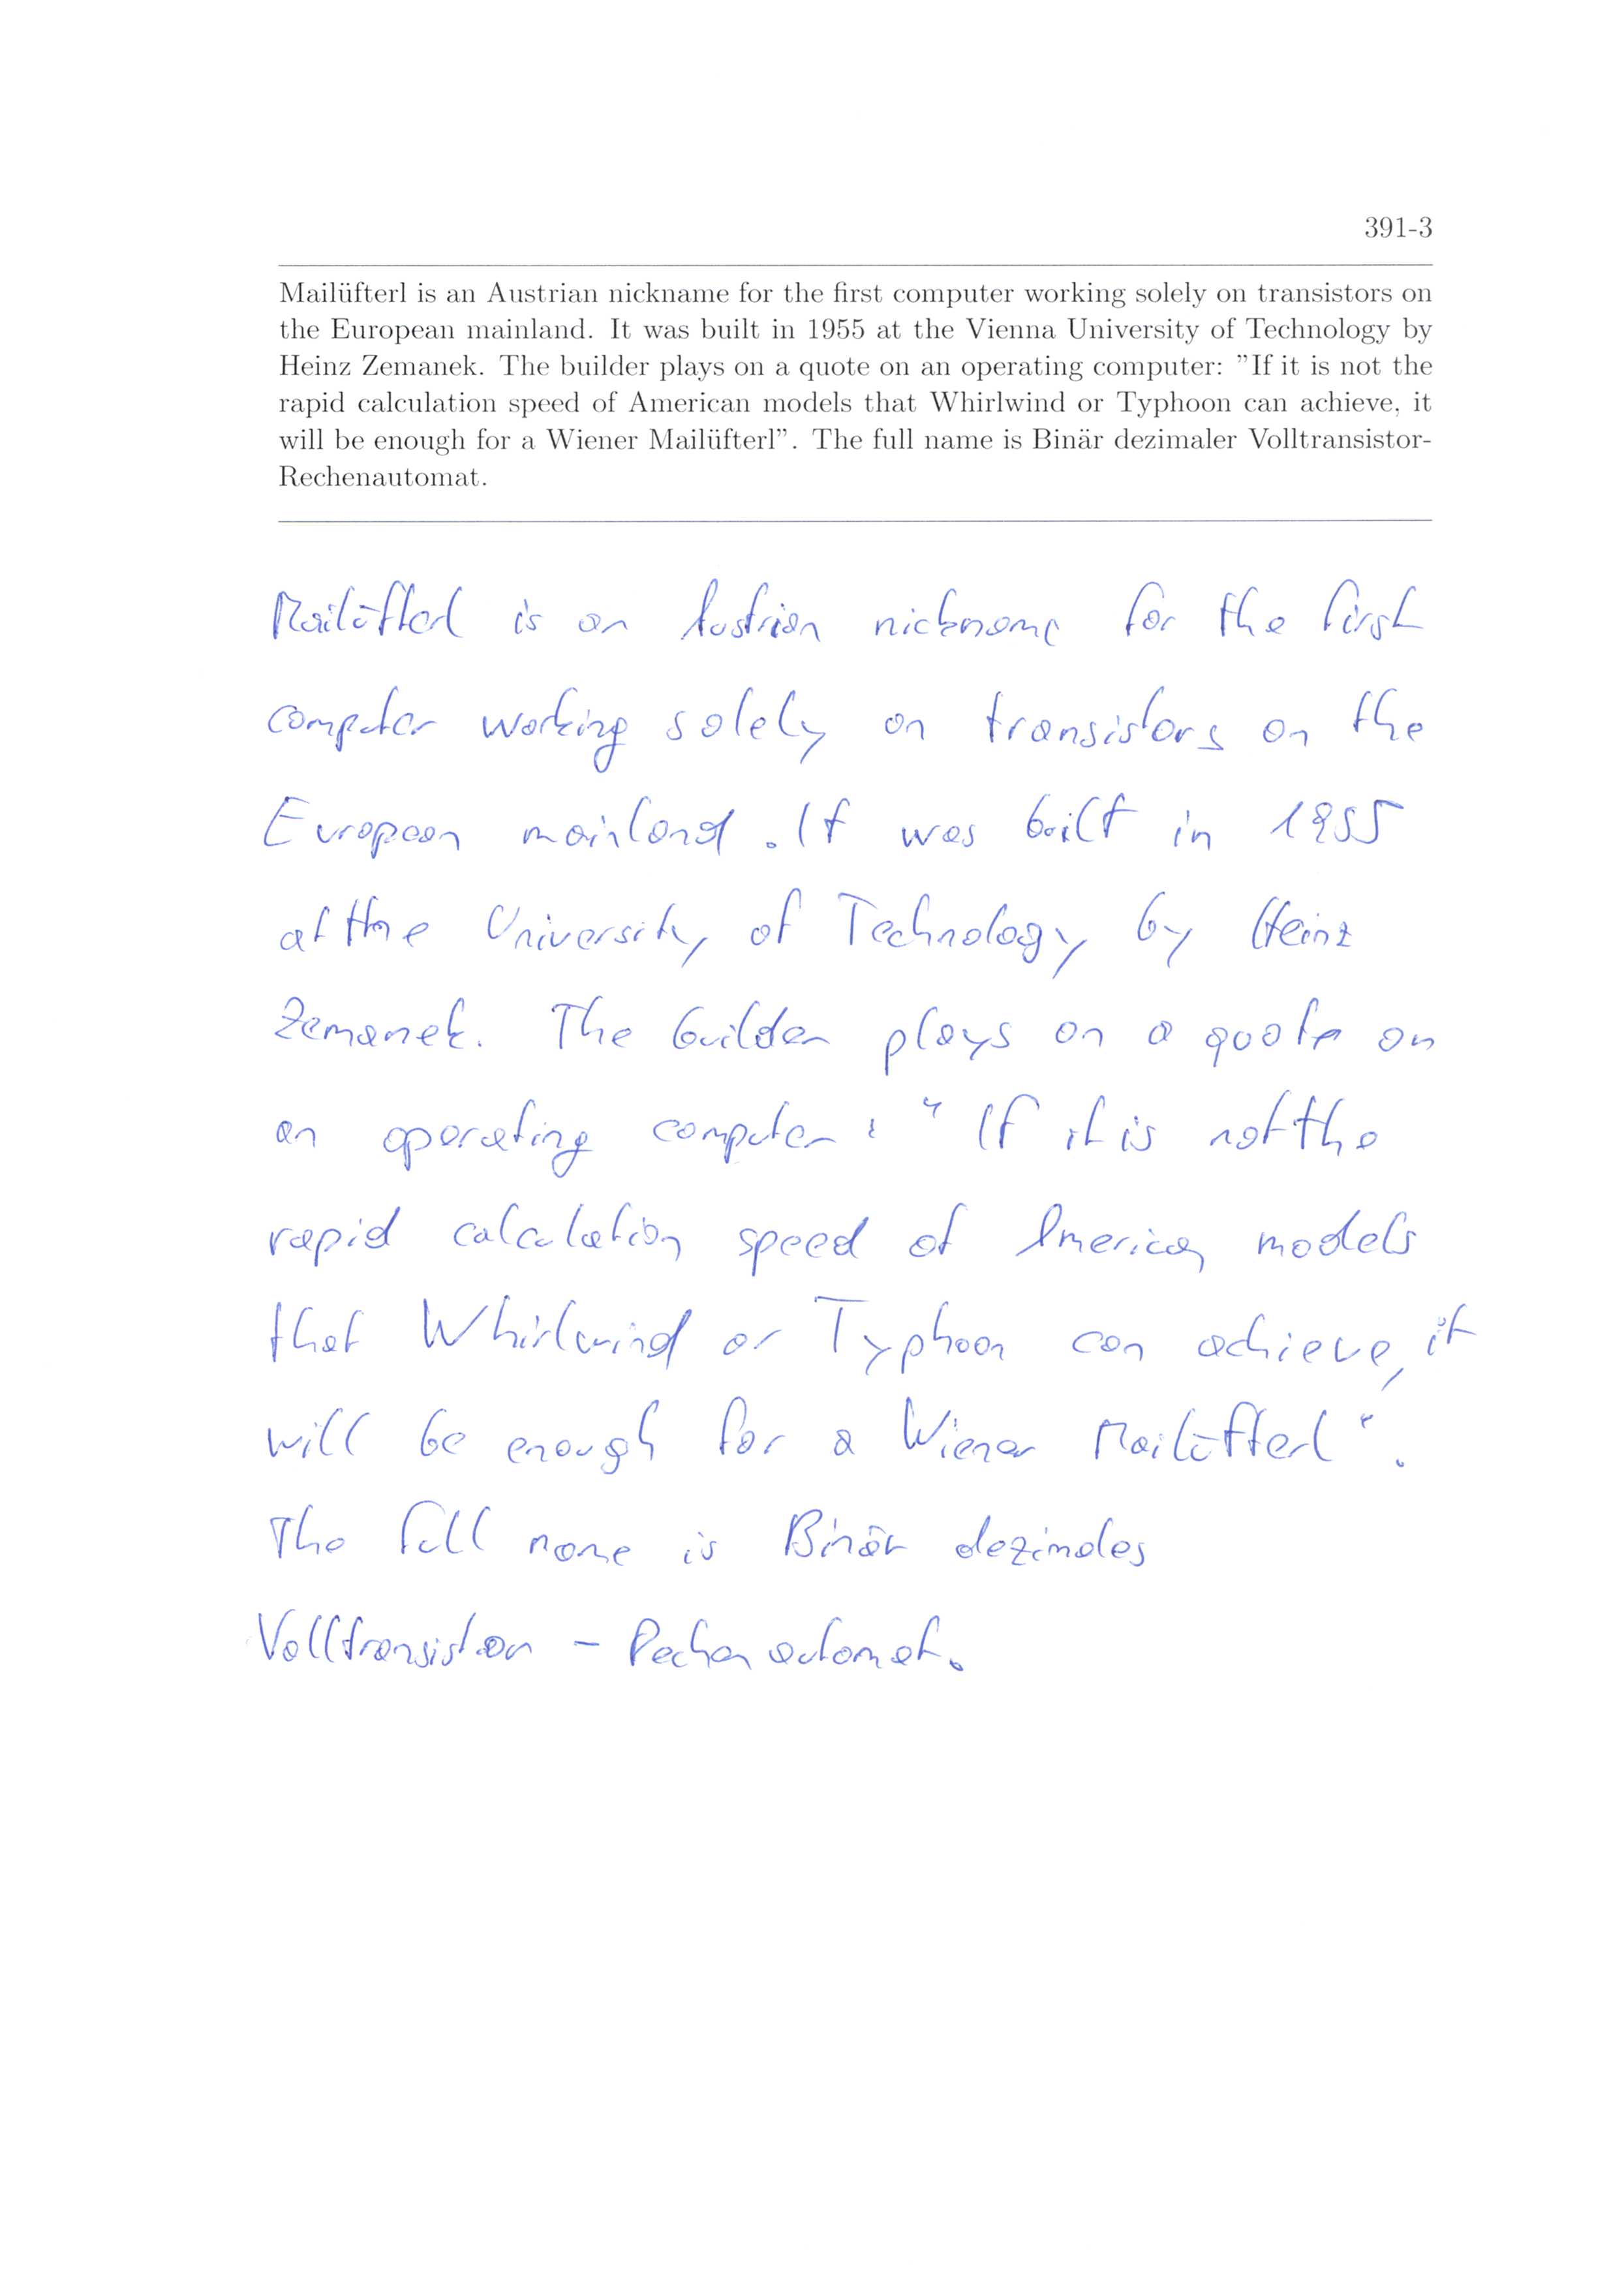 391-3
Mailüfterl is an Austrian nickname for the first computer working solely on transistors on
the European mainland. It was built in 1955 at the Vienna University of Technology by
Heinz Zemanek. The builder plays on a quote on an operating computer: "If it is not the
rapid calculation speed of American models that Whirlwind or Typhoon can achieve, it
will be enough for a Wiener Mailüfterl". The full name is Binär dezimaler Volltransistor-
Rechenautomat.
Mailüfterl is an Austrian nickname for the first
computer working solely on transistors on the
European mainland. It was built in 1955
at the University of Technology by Heinz
Zemanek. The builder plays on a quote on
an operating computer: "If it is not the
rapid calculation speed of American models
that Whirlwind or Typhoon can achieve, it
will be enough for a Wiener Mailüfterl".
The full name is Binär dezimales
Volltransistor - Rechenautomat.